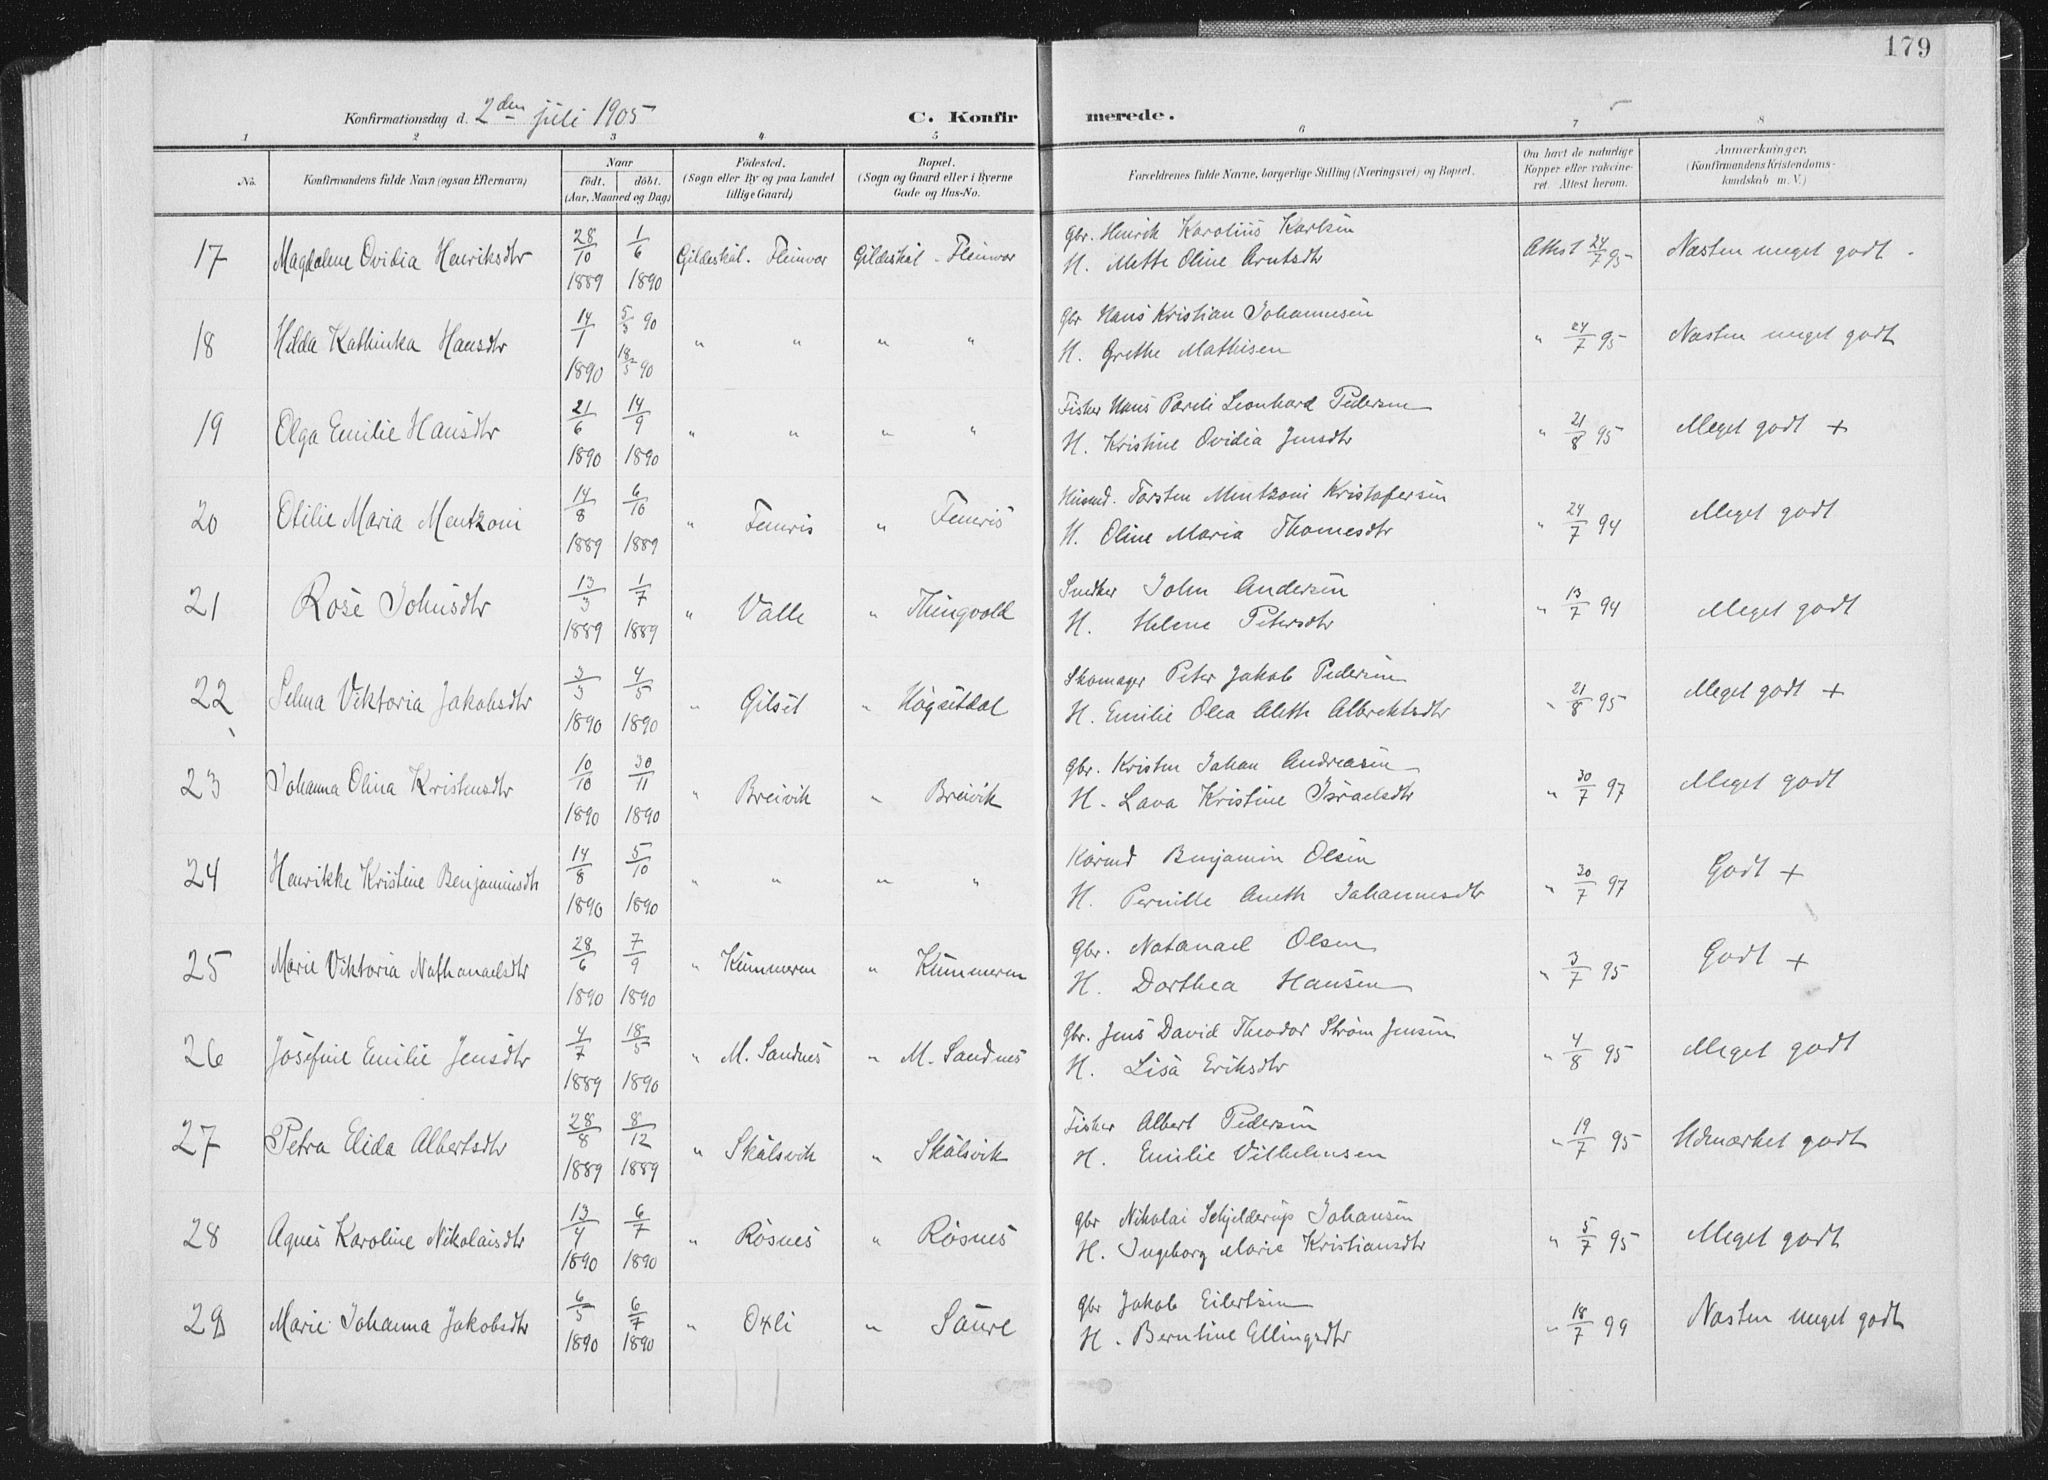 179
Konfirmationsdag d. 2den juli 1905 C. Konfirmerede.
1 2 3 4 5 6 7 8
No. Konfirmandens fulde Navn (ogsaa Efternavn) Naar født. døbt. (Aar, Maaned og Dag) Fødested. (Sogn eller By og paa Landet tillige Gaard) Bopæl. (Sogn og Gaard eller i Byerne Gade og Hus-No. Forældrenes fulde Navne, borgerlige Stilling (Næringsvei) og Bopæl. Om havt de naturlige Kopper eller vakcineret. Attest herom. Anmærkninger. (Konfirmandens Kristendomskundskab m. V.)
17 Magdalene Ovidia Henriksdtr 28/10 1889 1/6 1890 Gildeskål. Fleinvær Gildeskål. Fleinvær Gbr. Henrik Karolius Karlsen Attest 24/7 95 Næsten meget godt.
H. Mette Oline Arntsdtr
18 Hilda Kathinka Hansdtr 14/1 1890 5/3 90 18/5 90 " " " " Gbr Hans Kristian Johannesen " 24/7 95 Næsten meget godt
H. Grethe Mathisen
19 Olga Emilie Hansdtr 21/6 1890 14/9 1890 " " " " Fisker Hans Pareli Leonhard Pedersen " 21/8 95 Meget godt +
H. Kristine Ovidia Jensdtr
20 Otilie Maria Mentzoni 14/8 1889 6/10 1889 " Femris " Femris Husmd. Torsten Mentzoni Kristofersen " 24/7 94 Meget godt
H. Oline Maria Thomesdtr
21 Rose Johnsdtr 13/3 1889 1/7 1889 " Valle " Thingvold Snedker John Andersen " 13/7 94 Meget godt
H. Helene Petersdtr
22 Selma Viktoria Jakobsdtr 3/3 1890 4/5 1890 " Gilset " Høgsetdal Skomager Peter Jakob Pedersen " 21/8 95 Meget godt +
H. Emilie Olea Aleth Albrektsdtr
23 Johanna Olina Kristensdtr 10/10 1890 30/11 1890 " Breivik " Breivik Gbr. Kristen Johan Andreasen " 30/7 97 Meget godt
H. Lava Kristine Israelsdtr
24 Henrikke Kristine Benjaminsdtr 14/8 1890 5/10 1890 " " " " Kårmd Benjamin Olsen " 30/7 97 Godt +
H. Pernille Aneth Johannesdtr
25 Marie Viktoria Nathanaelsdtr 28/6 1890 7/9 1890 " Kummeren " Kummeren Gbr. Natanael Olsen " 3/7 95 Godt +
H. Dorthea Hansen
26 Josefine Emilie Jensdtr 4/7 1889 18/5 1890 " M. Sandnes " M. Sandnes Gbr. Jens David Theodor Strøm Jensen " 4/8 95 Meget godt
H. Lisa Eriksdtr
27 Petra Elida Albertsdtr 28/8 1889 8/12 1889 " Skålsvik " Skålsvik Fisker Albert Pedersen " 19/7 95 Udmærket godt
H. Emilie Vilhelmsen
28 Agnes Karoline Nikolaisdtr 13/4 1890 6/7 1890 " Røsnes " Røsnes Gbr Nikolai Schjelderup Johansen " 5/7 95 Meget godt
H. Ingeborg Marie Kristiansdtr
29 Marie Johanna Jakobsdtr 6/5 1890 6/7 1890 " Oxli " Saure Gbr Jakob Eilertsen " 18/7 99 Næsten meget godt
H. Berntine Ellingsdtr